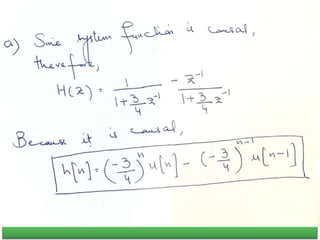 a) Sinie system function is causal,
therefore,
H(z) = 1/(1+3/4 z^-1) - z^-1/(1+3/4 z^-1)
Because it is causal,
h[n] = (-3/4)^n u[n] - (-3/4)^(n-1) u[n-1]